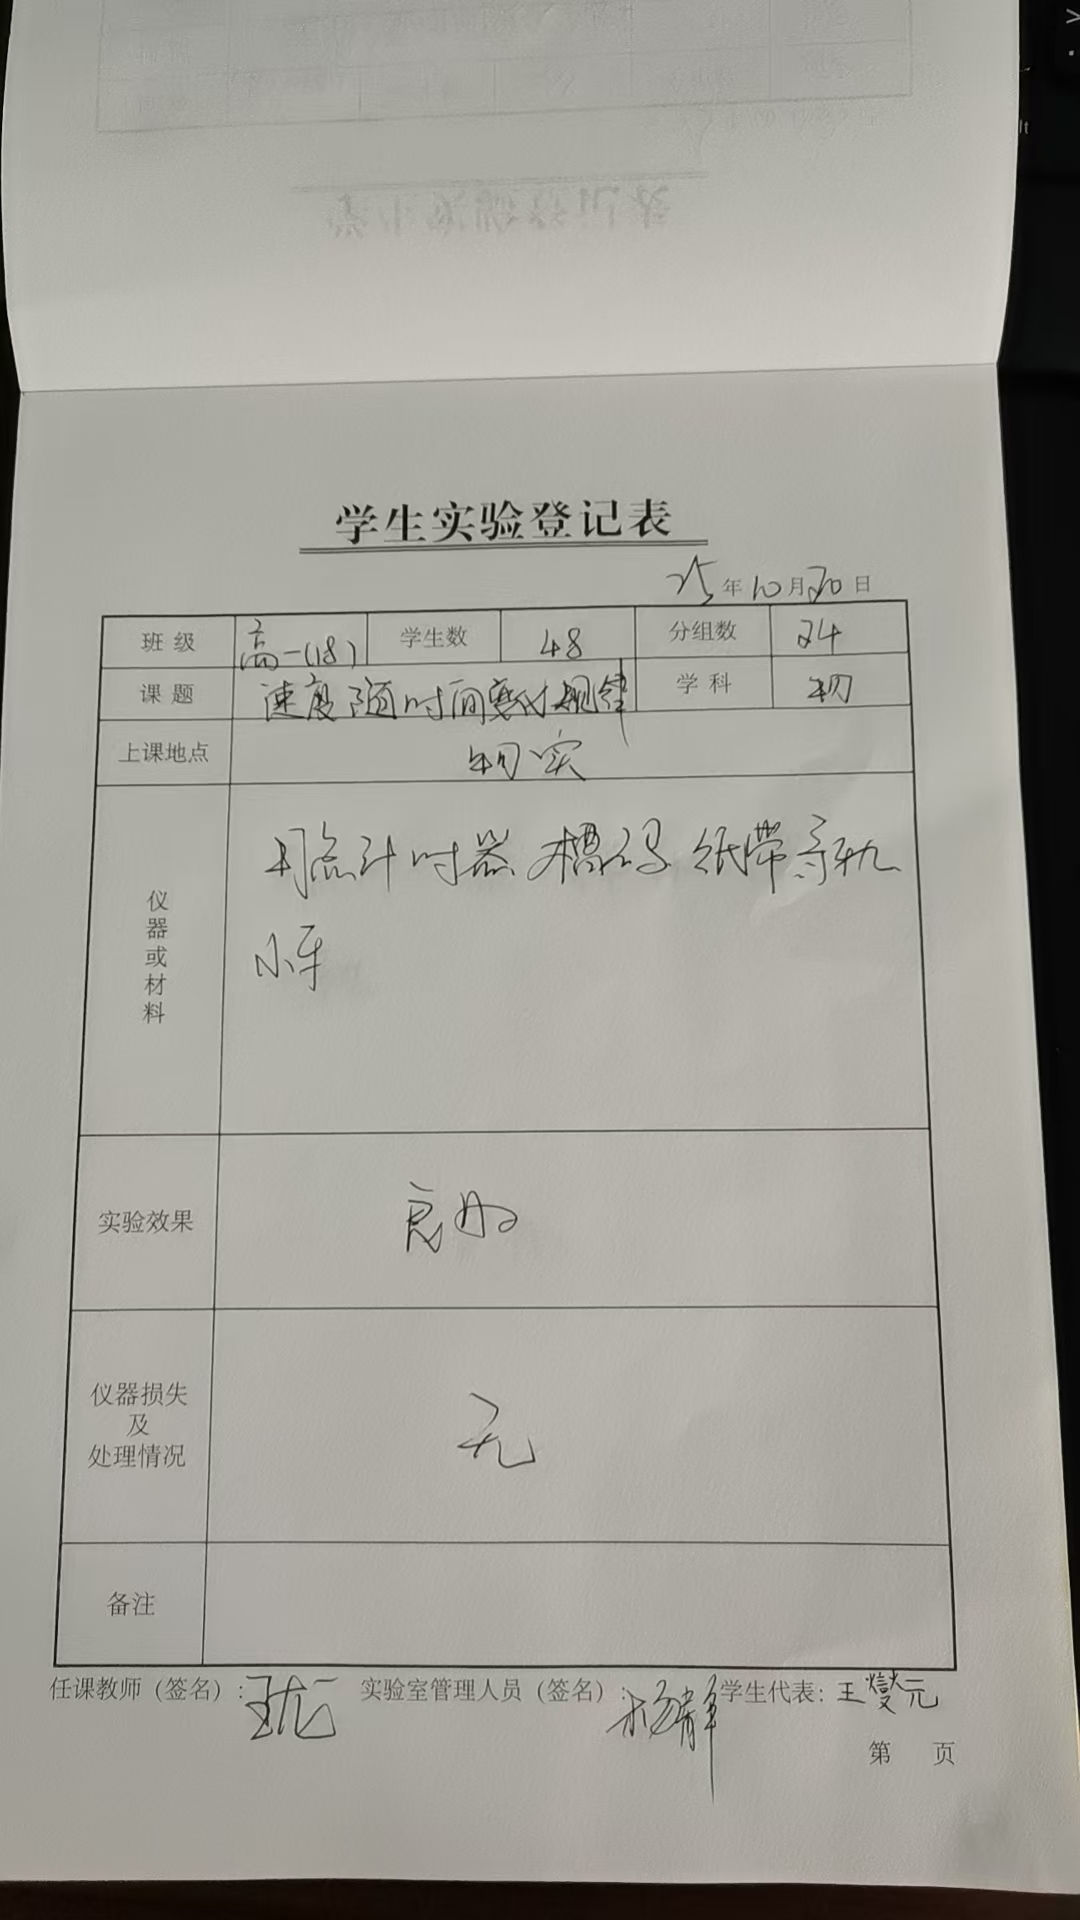 学生实验登记表
25年10月30日
班 级 高一(18) 学生数 48 分组数 24
课 题 速度随时间变化规律 学 科 物
上课地点 物实
仪器或材料 打点计时器 槽码 纸带 导轨
小车
实验效果 良好
仪器损失
及
处理情况 无
备注
任课教师（签名）： 实验室管理人员（签名） 杨静 学生代表：王燮元
第 页